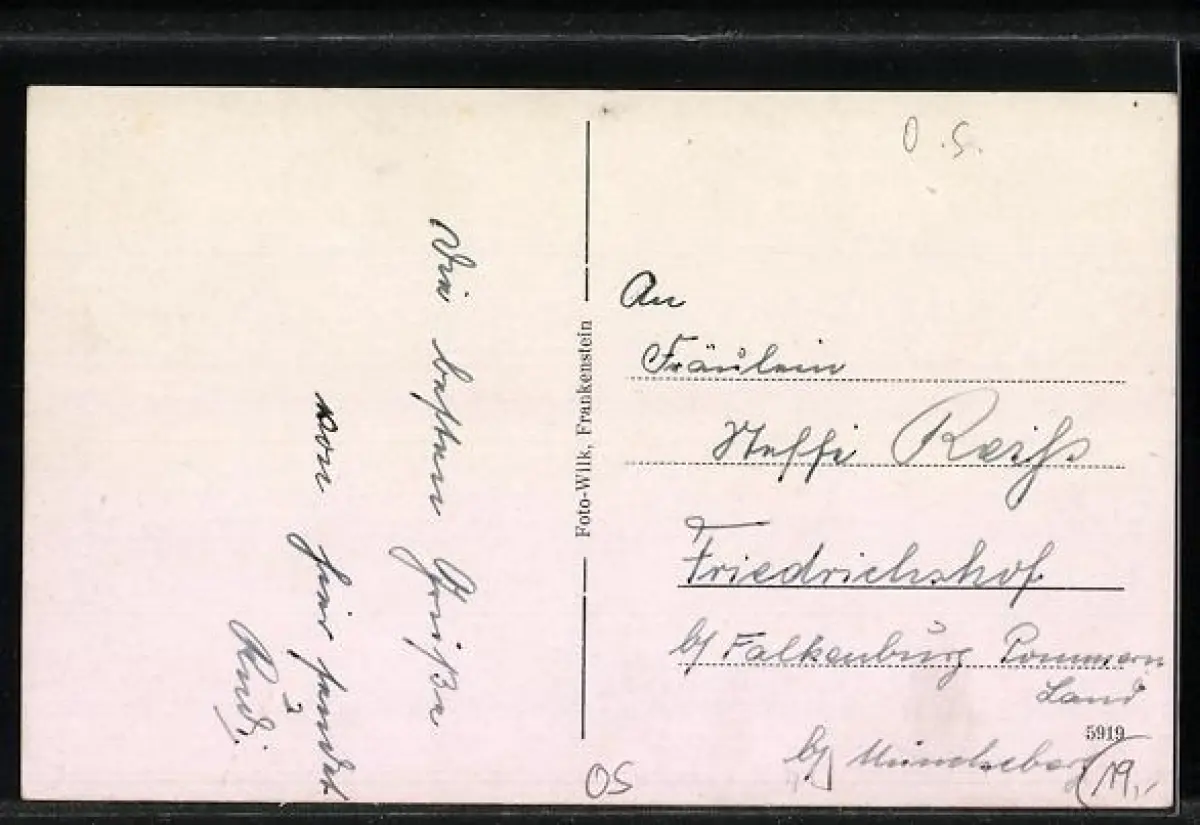 Die besten Grüße
von hier sendet
Rudi.
Foto-Wilk, Frankenstein
O.S.
An
Fräulein
Steffi Reiß
Friedrichshof
b/ Falkenburg Pommern
Land
5919
b/ Müncheberg
19,-
OS